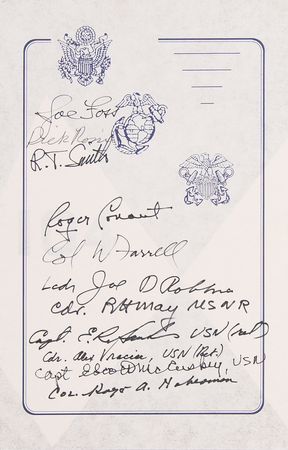 Joe Foss
Dick Rossi
R. T. Smith
Roger Conant
Col W Farrell
Lcdr Joe D Robbins
Cdr. RH May USNR
Capt. E. USN (ret)
Cdr. Alex Vraciu, USN (Ret.)
Capt Scott McCuskey, USN
Col. Roger A. Haberman